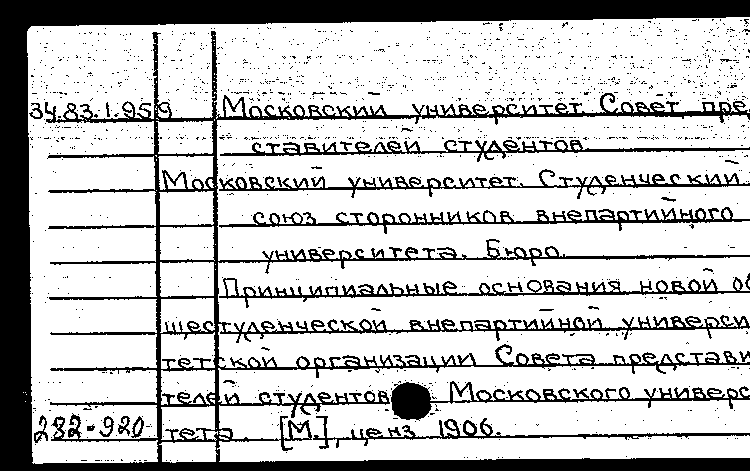 34.83.1.959 Московский университет. Совет пред
ставителей студентов.
Московский университет. Студенческий
союз сторонников внепартийного
университета. Бюро.
Принципиальные основания новой об
щестуденческой внепартийной универси
тетской организации Совета представи
телей студентов Московского универс
282-920 тета. [М.], ценз 1906.